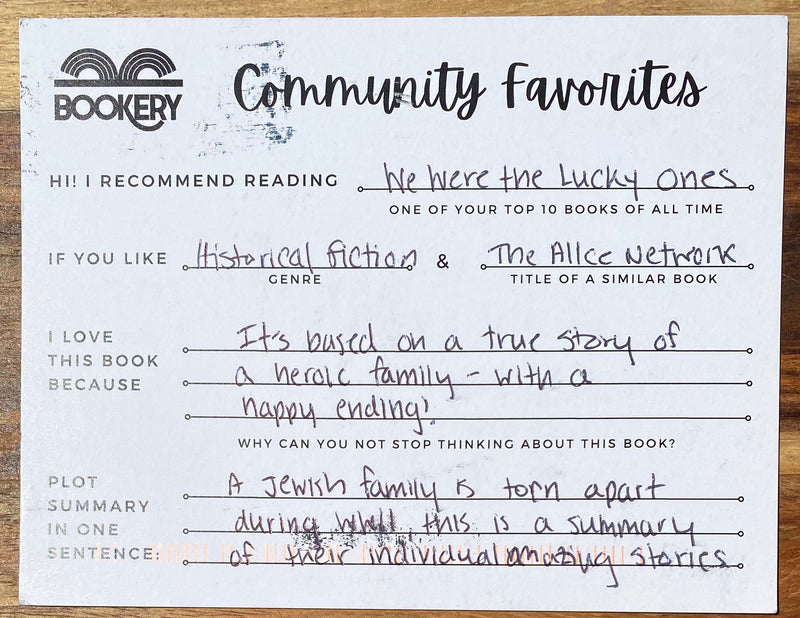 BOOKERY
Community Favorites
HI! I RECOMMEND READING We Were the Lucky Ones
ONE OF YOUR TOP 10 BOOKS OF ALL TIME
IF YOU LIKE Historical fiction & The Alice Network
GENRE TITLE OF A SIMILAR BOOK
I LOVE It's based on a true story of
THIS BOOK a heroic family - with a
BECAUSE happy ending!
WHY CAN YOU NOT STOP THINKING ABOUT THIS BOOK?
PLOT A Jewish family is torn apart
SUMMARY during WWII, this is a summary
IN ONE
SENTENCE: of their individual amazing stories